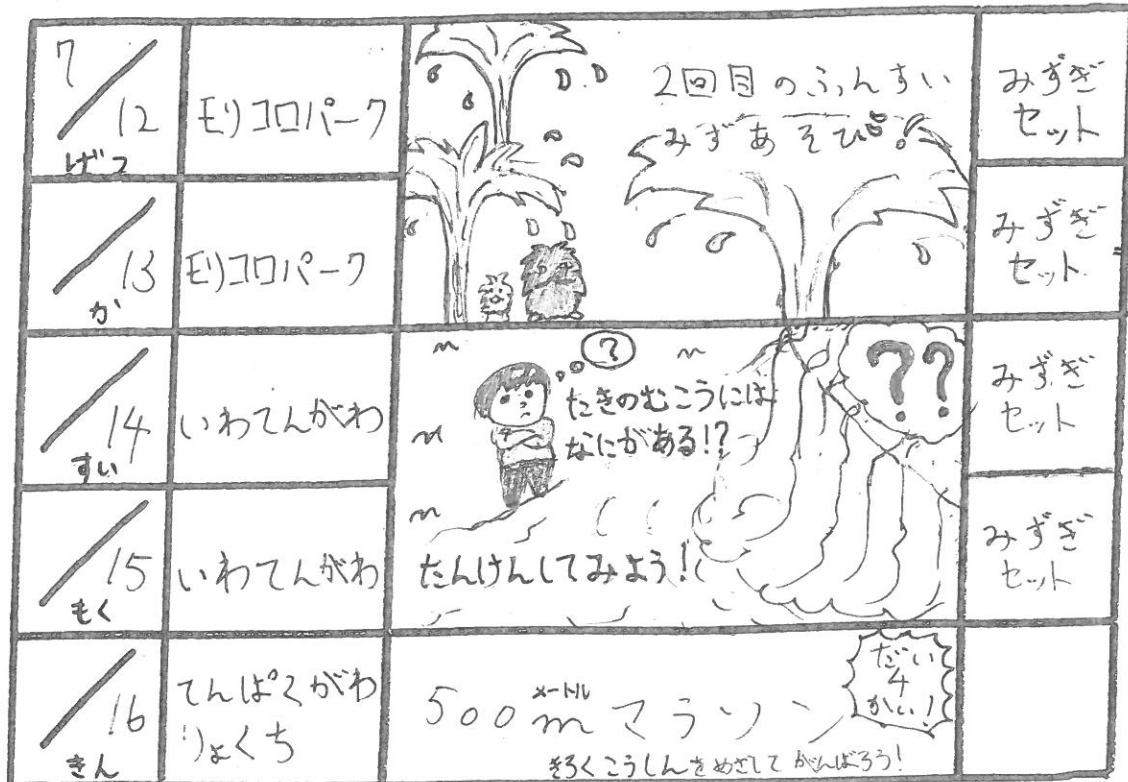 7/12
げつ
モリコロパーク
2回目のふんすい
みずあそび!
みずぎ
セット
/13
か
モリコロパーク
みずぎ
セット
/14
すい
いわてんがわ
?
たきのむこうには
なにがある!?
??
みずぎ
セット
/15
もく
いわてんがわ
たんけんしてみよう!
みずぎ
セット
/16
きん
てんぱくがわ
りょくち
500mマラソン
メートル
だい
4
かい!
きろくこうしんをめざしてがんばろう!